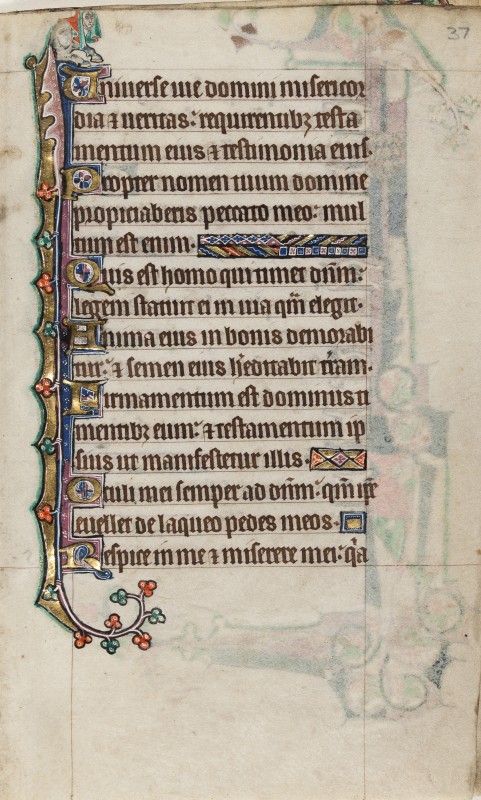 37
Uniuerse uie domini misericor
dia ⁊ ueritas: requirentibꝫ testa
mentum eius ⁊ testimonia eius.
Propter nomen tuum domine
propiciaberis peccato meo: mul
tum est enim.
Quis est homo qui timet dn̄m:
legem statuit ei in uia qm̄ elegit.
Anima eius in bonis demorabi
tur: ⁊ semen eius h̄editabit tr̄am.
Firmamentum est dominus ti
mentibꝫ eum: ⁊ testamentum ip
sius ut manifestetur illis.
Oculi mei semper ad dn̄m: qm̄ ip̄e
euellet de laqueo pedes meos.
Respice in me ⁊ miserere mei: q̄a